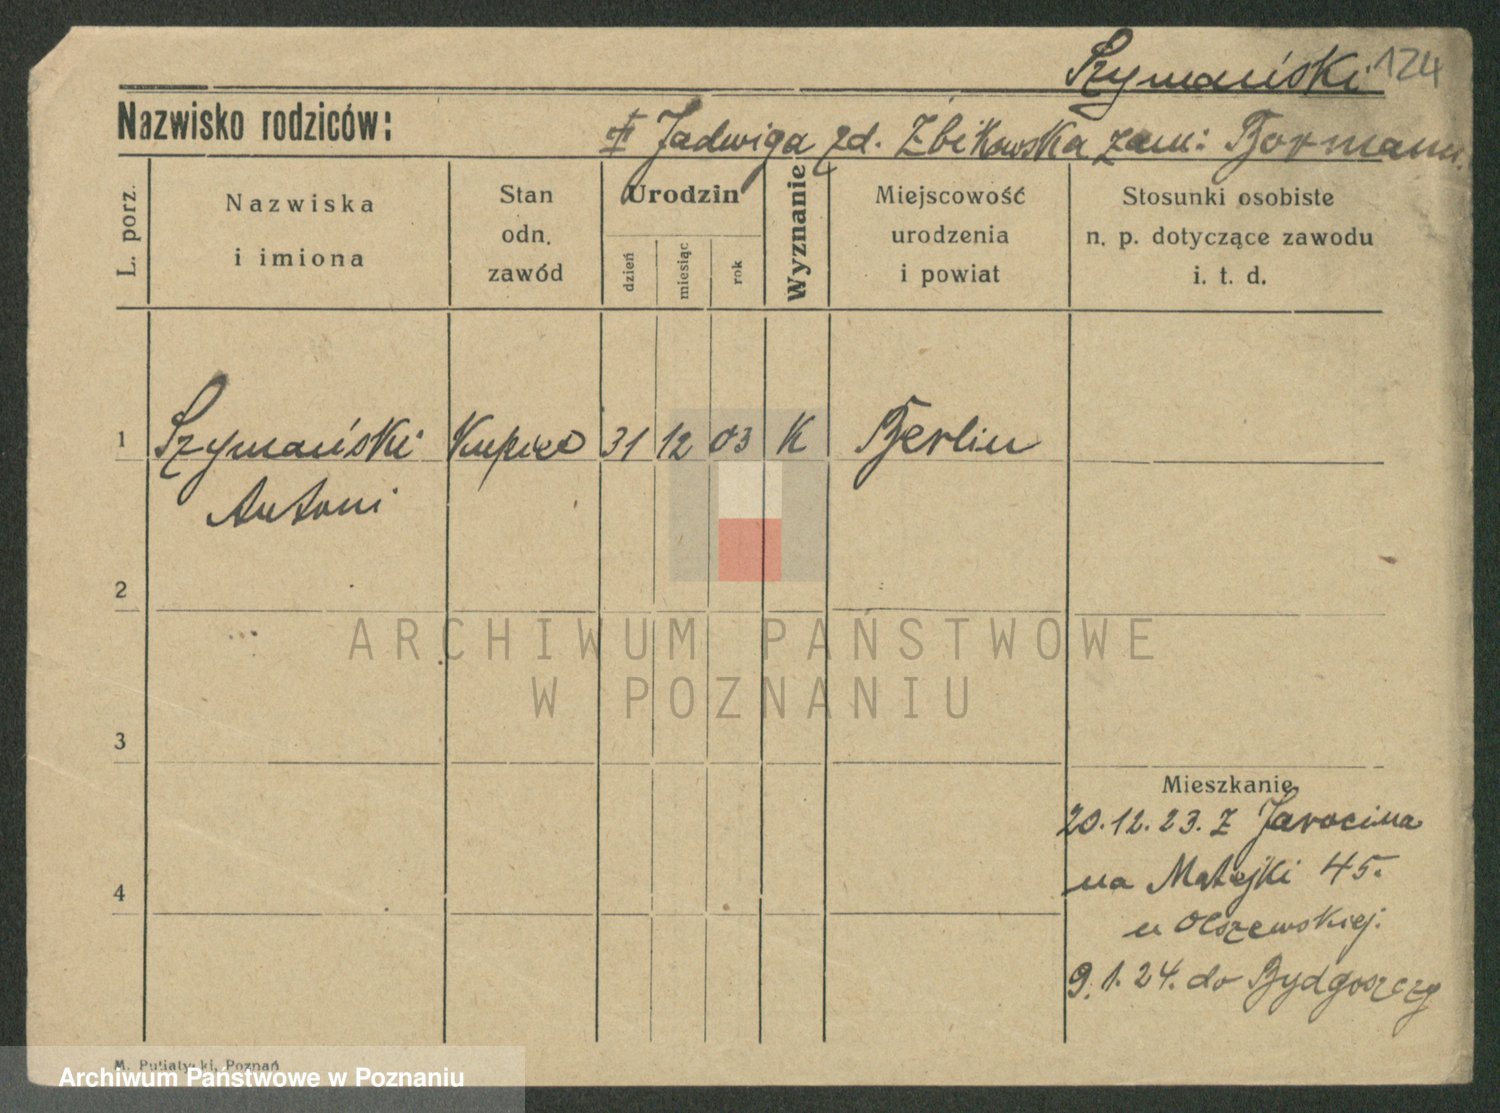 Szymański 124
Nazwisko rodziców:
II Jadwiga zd. Żbikowska zam: Bormann.
L. porz.
Nazwiska
i imiona
Stan
odn.
zawód
Urodzin
dzień
miesiąc
rok
Wyznanie
Miejscowość
urodzenia
i powiat
Stosunki osobiste
n. p. dotyczące zawodu
i. t. d.
1 Szymański Kupiec 31 12 03 K Berlin
Antoni
2
ARCHIWUM PAŃSTWOWE
W POZNANIU
3
Mieszkanie
20.12.23. z Jarocina
na Matejki 45.
4
u Olszewskiej.
9.1.24. do Bydgoszczy
M. Putiatycki, Poznań
Archiwum Państwowe w Poznaniu